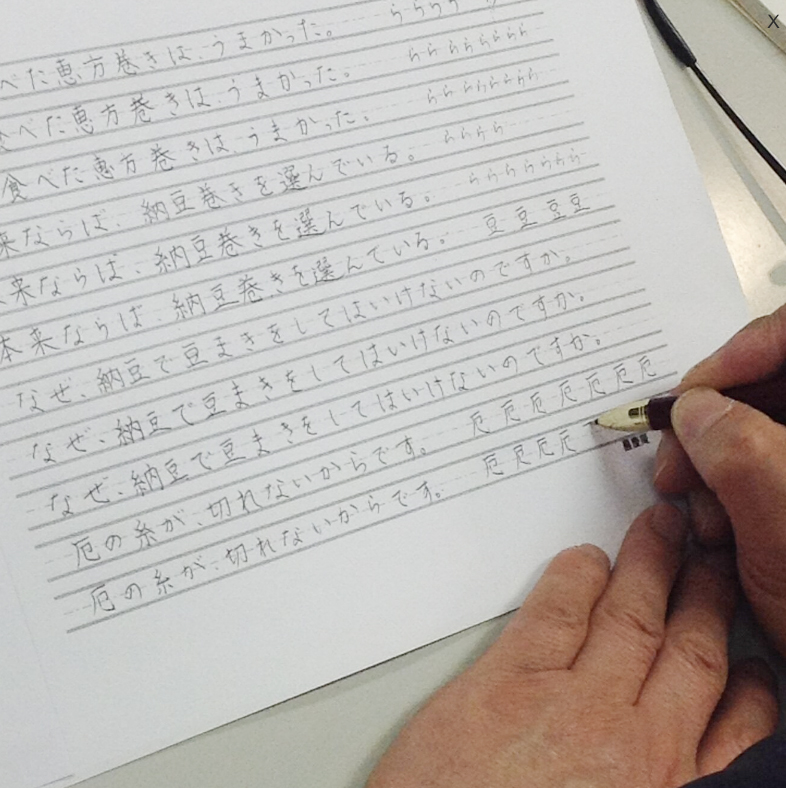 べた恵方巻きは、うまかった。 らららら
食べた恵方巻きは、うまかった。 ららららららら
食べた恵方巻きは、うまかった。 ららららららら
来ならば、納豆巻きを選んでいる。 らららら
本来ならば、納豆巻きを選んでいる。 ららららららら
本来ならば、納豆巻きを選んでいる。 豆豆豆豆
なぜ、納豆で豆まきをしてはいけないのですか。
なぜ、納豆で豆まきをしてはいけないのですか。
なぜ、納豆で豆まきをしてはいけないのですか。
厄の糸が、切れないからです。 厄厄厄厄厄厄厄
厄の糸が、切れないからです。 厄厄厄厄
X